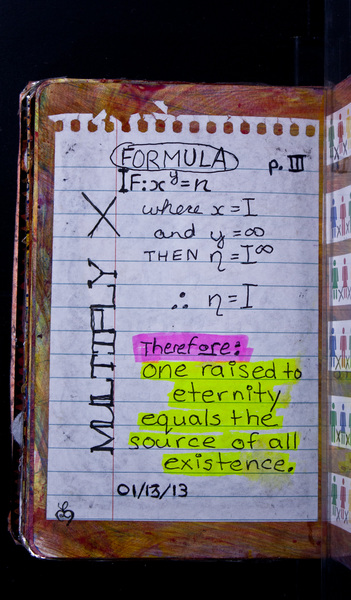 FORMULA
p. III
IF: x^y = n
where x = I
and y = ∞
THEN n = I^∞
∴ n = I
MULTIPLY X
Therefore:
one raised to
eternity
equals the
source of all
existence.
01/13/13